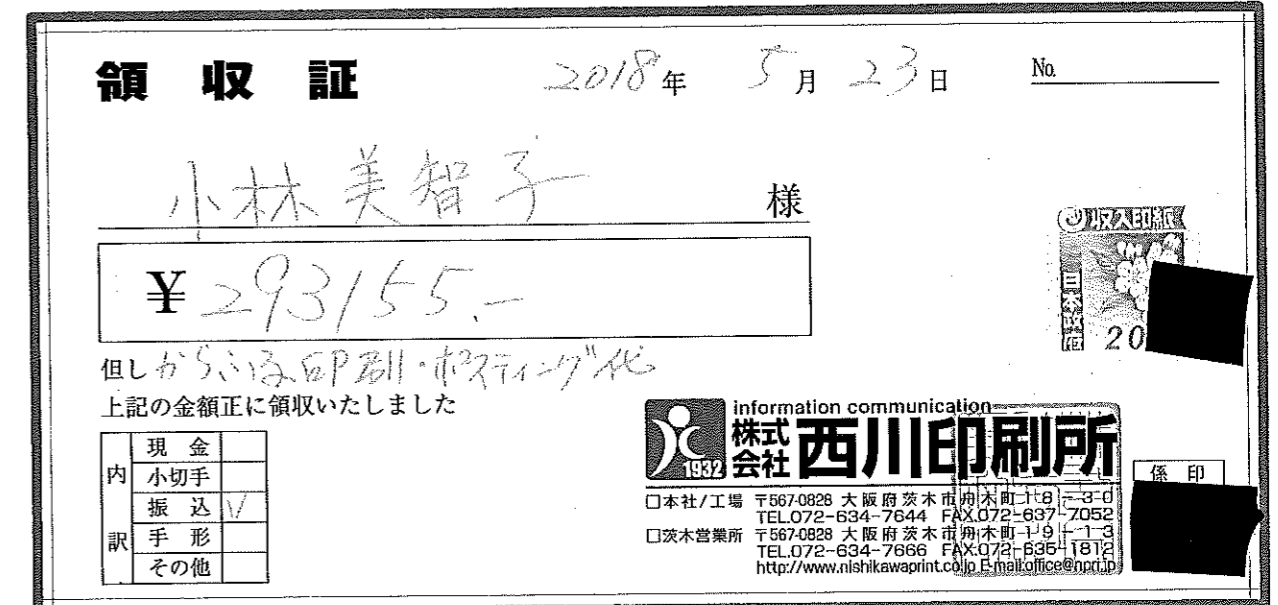 領収証 2018年 5月 23日 No.
小林美智子 様
収入印紙
日本政府
20
¥293155.-
但し からふる 印刷・ポスティング代
上記の金額正に領収いたしました
内訳
現金
小切手
振込 ✓
手形
その他
information communication
1932
株式会社 西川印刷所
係印
□本社/工場 〒567-0828 大阪府茨木市舟木町18-30
TEL.072-634-7644 FAX.072-637-7052
□茨木営業所 〒567-0828 大阪府茨木市舟木町19-13
TEL.072-634-7666 FAX.072-635-1812
http://www.nishikawaprint.co.jp E-mail:office@npri.jp